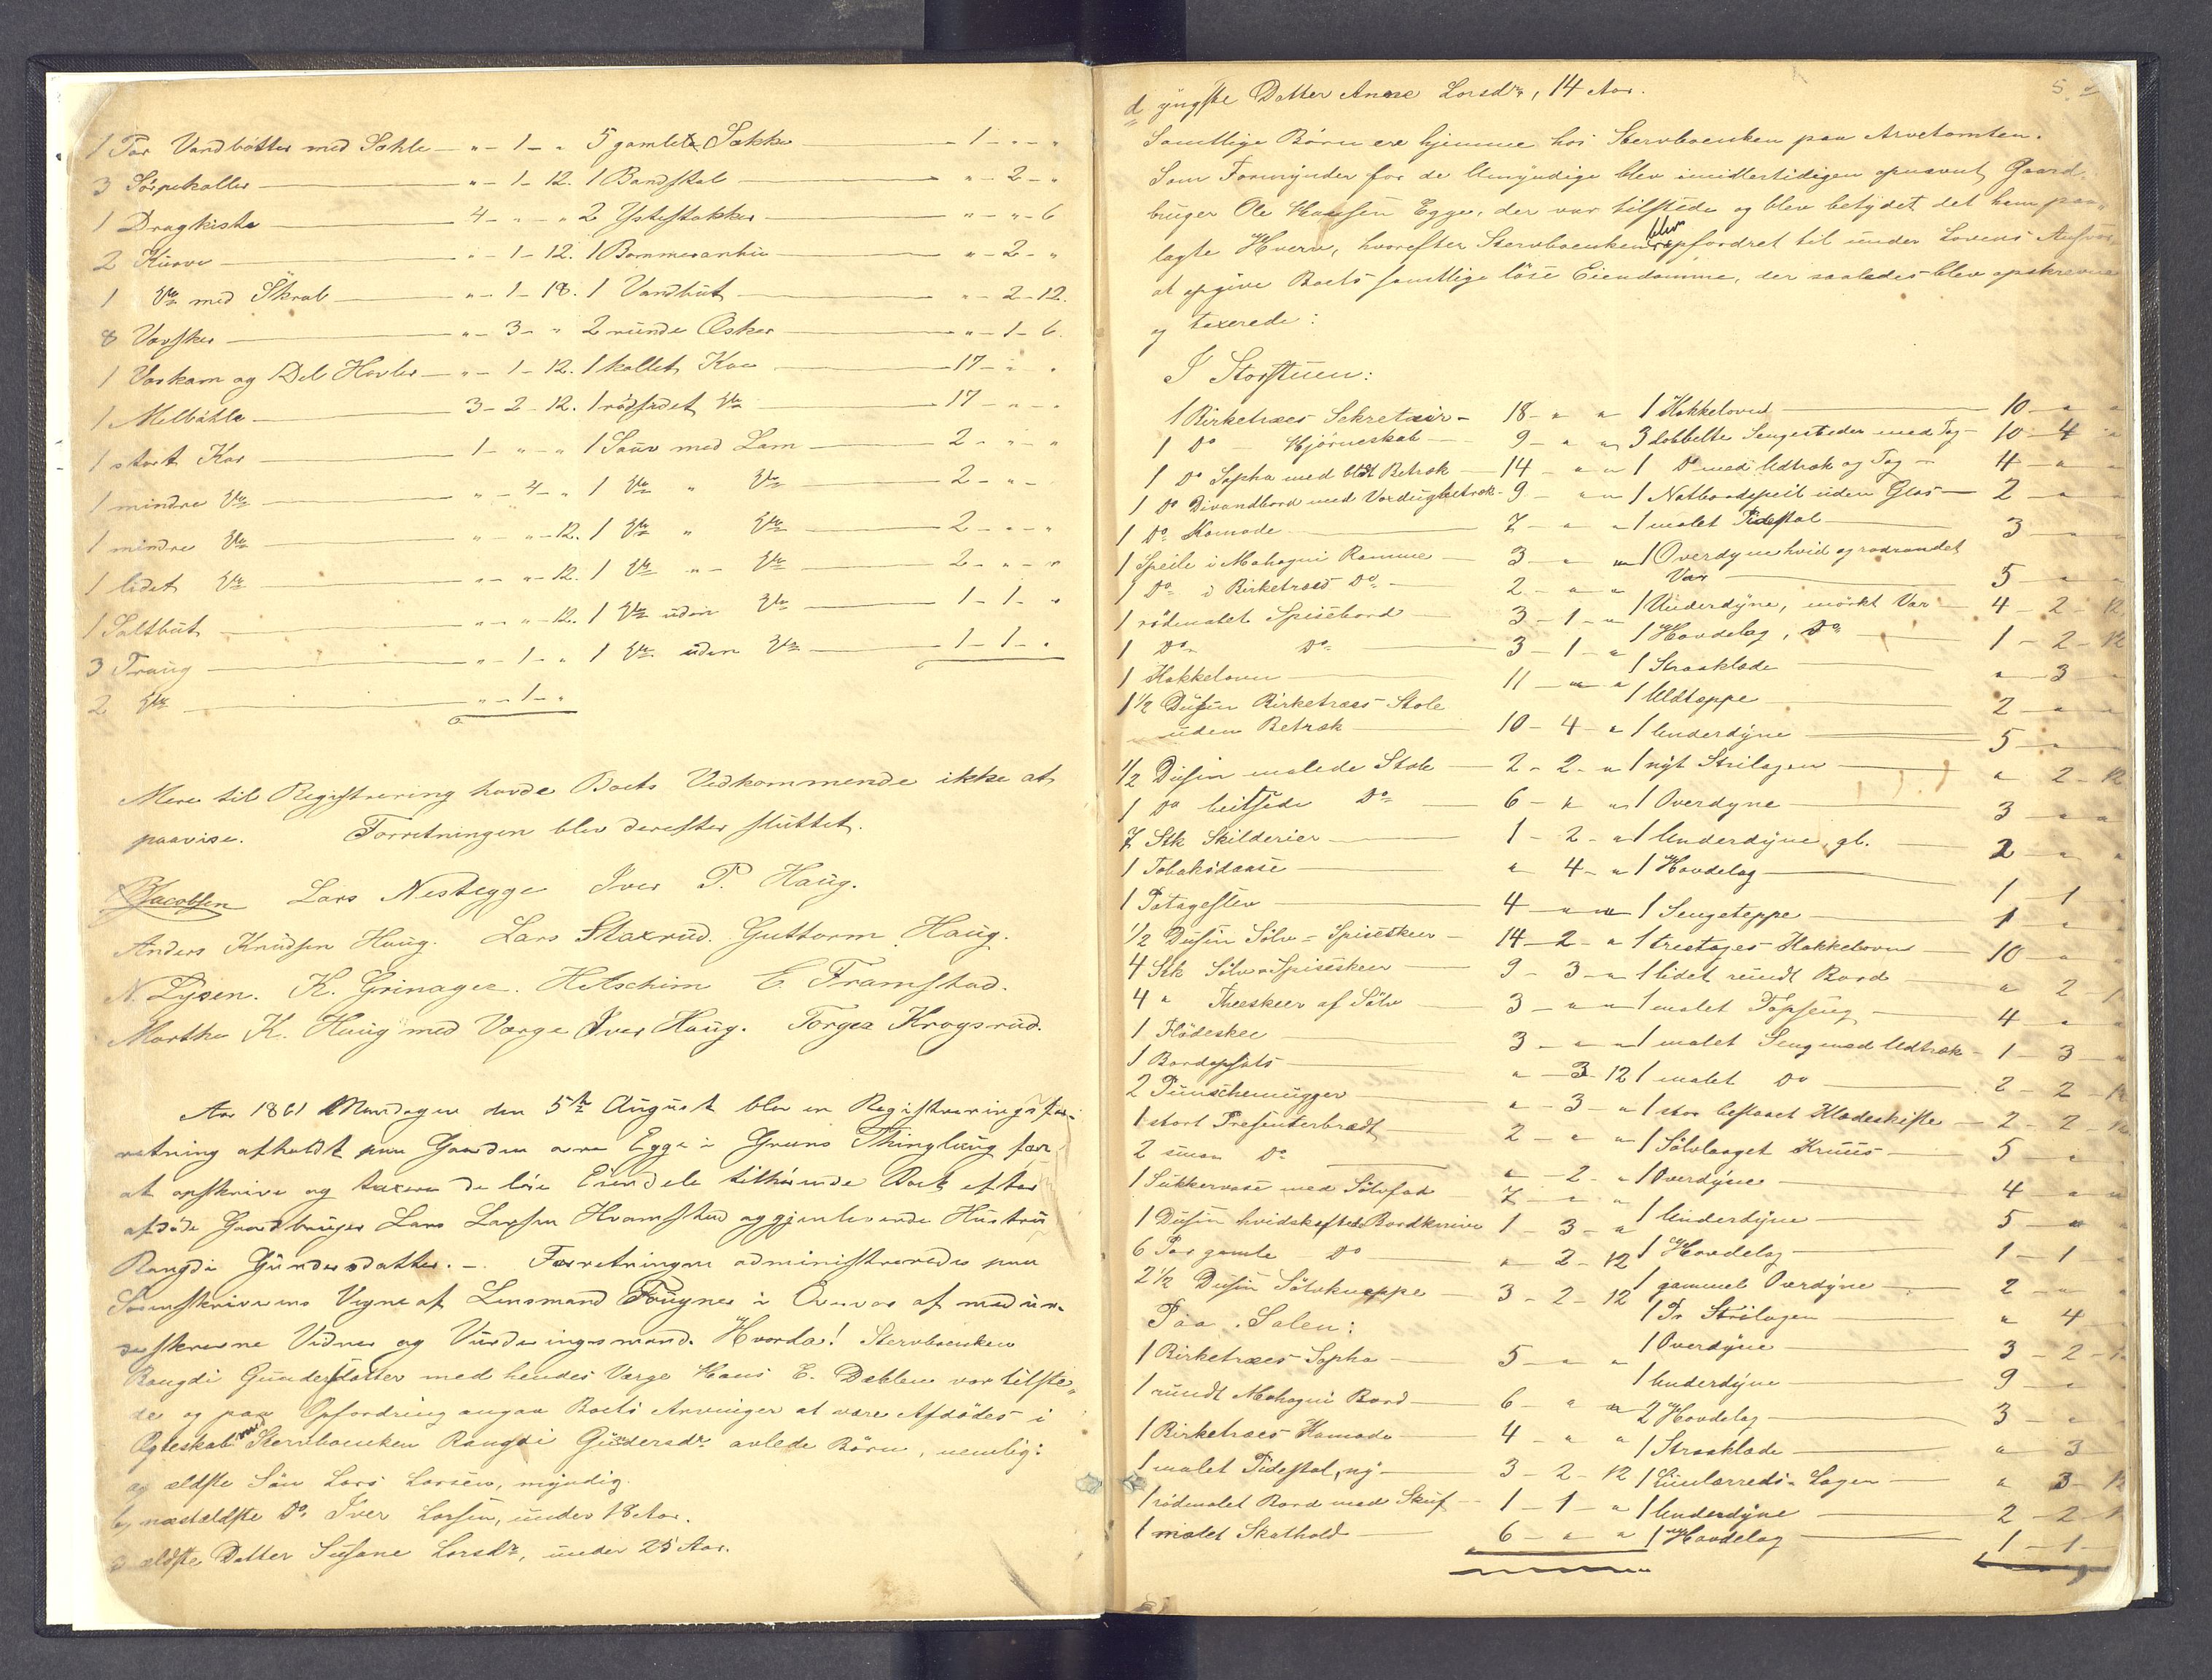 1 Par Vandbötter med Sahle — " - 1 - "
3 Sörpekoller — " - 1 - 12.
1 Dragkiste — 4 - " - "
2 Kurve — " - 1 - 12.
1 Do med Skrab — " - 1 - 18.
8 Vævsker — " - 3 - "
1 Vævkam og Del Hovler — " - 1 - 12.
1 Melbøhle — 3 - 2 - 12.
1 stort Kar — 1 - " - "
1 mindre Do — " - 4 - "
1 mindre Do — " - " - 12.
1 lidet Do — " - " - 12.
1 Saltbut — " - " - 12.
3 Traug — " - 1 - "
2 Do — " - 1 - "
5 gamle Sække — 1 - " - "
1 Bandstol — " - 2 - "
2 Ystestakker — " - " - 6
1 Bommesanker — " - 2 - "
1 Vandbut — " - 2 - 12.
2 runde Esker — " - 1 - 6.
1 kollet Koe — 17 - " - "
1 rödsidet Do — 17 - " - "
1 Sauv med Lam — 2 - " - "
1 Do " Do — 2 - " -
1 Do " Do — 2 - " - "
1 Do " - Do — 2 - " - "
1 Do uden Do — 1 - 1 - "
1 Do uden Do — 1 - 1 - "
Mere til Registrering havde Boets Vedkommende ikke at
paavise. Forretningen blev derefter sluttet.
Jacobsen Lars Nestegge Iver P. Haug.
Anders Knudsen Haug. Lars Staxrud. Guttorm Haug.
N. Lysen. K. Grinager. H Aschim E. Framstad.
Marthe K. Haug med Værge Iver Haug. Torger Krogsrud.
Aar 1861 Mandagen den 5te August blev en Registreringsfor-
retning afholdt paa Gaarden øvre Egge i Grans Thinglaug for
at opskrive og taxere de löse Eiendele tilhörende Boet efter
afdöde Gaardbruger Lars Larsen Hvamstad og gjenlevende Hustru
Rangdi Gundersdatter. - Forretningen administreredes paa
Sorenskriverens Vegne af Lensmand Frugner i Overvær af med un-
derskrevne Vidner og Vurderingsmænd. Hvorda! Stervboenken
Rangdi Gundersdatter med hendes Værge Hans E. Dæhlen var tilste-
de og paa Opfordring angav Boets Arvinger at være Afdødes i
Ægteskab med Stervboenken Rangdi Gundersdr avlede Börn, nemlig:
a, ældste Sön Lars Larsen, myndig.
b, næstældste Do. Iver Larsen, under 18 Aar.
c, ældste Datter Susane Larsdr, under 25 Aar.
5
d, yngste Datter Anne Larsdr, 14 Aar.
Samtlige Börn ere hjemme hos Stervboenken paa Arvetomten.
Som Formynder for de Umyndige blev imidlertidigen opnævnt Gaard-
bruger Ole Hansen Egge, der var tilstede og blev betydet det ham paa-
lagte Hverv, hvorefter Stervboenken blev opfordret til under Lovens Ansvar
at opgive Boets samtlige löse Eiendomme, der saaledes blev opskrevne
og taxerede:
I Storstuen:
1 Birketræes Sekretair - 18 - " "
1 Do - Hjörneskab — 9 - " "
1 Do Sopha med blåt Betræk — 14 - " "
1 Do Divandbord med Voxdugbetræk - 9 - " "
1 Do Komode — 7 - " "
1 Speile i Mahogni Ramme — 3 - " "
1 Do i Birketræes Do — 2 - " "
1 rödmalet Spisebord — 3 - 1 - "
1 Do Do — 3 - 1 - "
1 Kakkelovn — 11 - " "
1 1/2 Dusin Birketræes Stole
uden Betræk — 10 - 4 - "
1/2 Dusin malede Stole — 2 - 2 - "
1 Do beitsede Do — 6 - " "
7 Stk Skilderier — 1 - 2 - "
1 Tobaksdaase — " 4 - "
1 Potageslev — 4 - " "
1/2 Dusin Sölv-Spiseskeer — 14 - 2 - "
4 Stk Sölv-Spiseskeer — 9 - 3 - "
4 " Theeskeer af Sölv — 3 - " "
1 Flödeskee — 3 - " "
1 Bordopsats — " - 3 - 12
2 Punschemugger — " - 3 - "
1 stort Presenterbrædt — 2 - " "
2 smaa Do — " - 2 - "
1 Sukkervase med Sölvfad — 7 - " "
1 Dusin hvidskaftede Bordknive 1 - 3 - "
6 Par gamle Do — " - 2 - 12
2 1/2 Dusin Sölvknappe — 3 - 2 - 12
Paa Salen:
1 Birketræes Sopha — 5 - " "
1 rundt Mahogni Bord — 6 - " "
1 Birketræes Komode — 4 - " "
1 malet Pidestal, ny — 3 - 2 - 12
1 rödmalet Bord med Skuf — 1 - 1 - "
1 malet Skathold — 6 - " "
1 Kakkelovn — 10 - "
3 dobbelte Sengesteder med Tag — 10 - 4 "
1 Do med Udtræk og Tag — 4 - "
1 Natbordspeil uden Glas — 2 - "
1 malet Pidestal — 3 - "
1 Overdyne hvid og rødrandet
Var — 5 - "
1 Underdyne, mörkt Var — 4 - 2 - 12
1 Hovdelag, Do — 1 - 2 - 12
1 Straaklæde — " - 3 -
1 Uldteppe — 2 - "
1 Underdyne — 5 - "
1 nyt Strilagen — " 2 - 12
1 Overdyne — 3 - "
1 Underdyne, gl. — 2 - "
1 Hovdelag — 1 - 1
1 Sengeteppe — 1 - "
1 treetages Kakkelovn — 10 - "
1 lidet rundt Bord — " 2 -
1 malet Topseng — 4 - "
1 malet Seng med Udtræk — 1 - 3 - "
1 malet Do — 2 - 2 - 12
1 stor beslaaet Klædeskiste — 2 - 2 - 12
1 Sölvlaaget Kruus — 5 - "
1 Overdyne — 4 - "
1 Underdyne — 5 - "
1 Hovdelag — 1 - 1
1 gammel Overdyne — 2 - "
1 Pr Strilagen — " 4 -
1 Overdyne — 3 - 2 -
1 Underdyne — 9 - "
2 Hovdelag — 3 - "
1 Straaklæde — " 3 -
1 Linlærreds-Lagen — " 3 - 12
1 Underdyne — 2 - 2 -
1 Hovdelag — 1 - 1 -